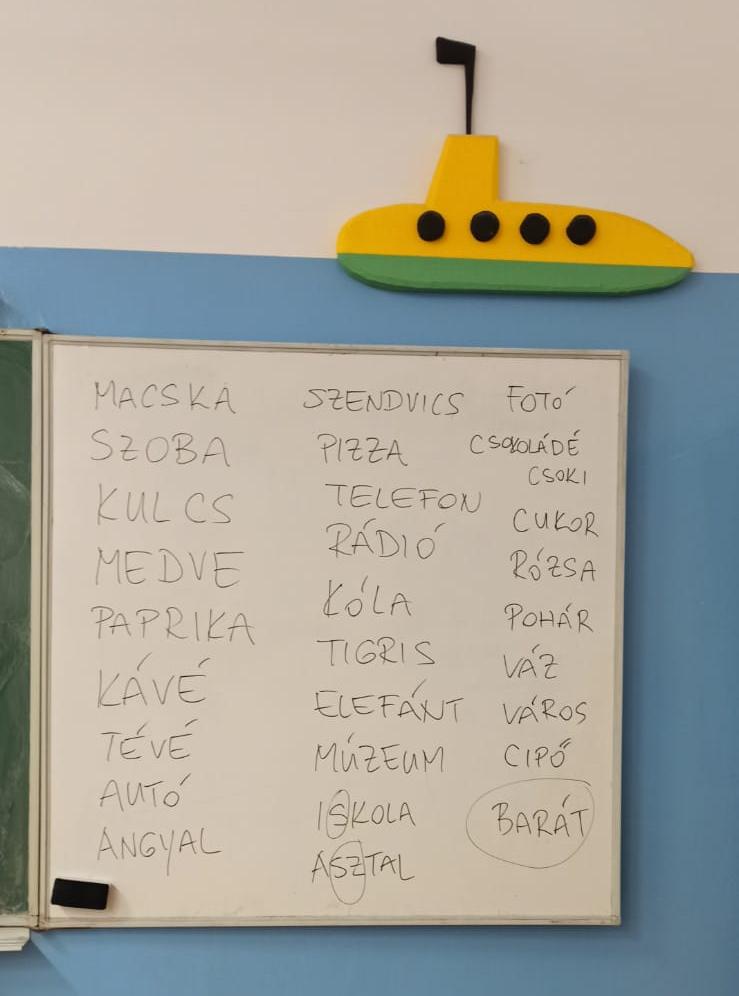 MACSKA
SZOBA
KULCS
MEDVE
PAPRIKA
KÁVÉ
TÉVÉ
AUTÓ
ANGYAL
SZENDVICS
PIZZA
TELEFON
RÁDIÓ
KÓLA
TIGRIS
ELEFÁNT
MÚZEUM
ISKOLA
ASZTAL
FOTÓ
CSOKOLÁDÉ
CSOKI
CUKOR
RÓZSA
POHÁR
VÁZ
VÁROS
CIPŐ
BARÁT